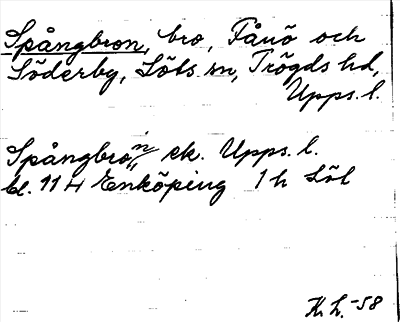 Spångbron, bro, Fånö och
Söderby, Löts sn, Trögds hd,
Upps. l.
Spångbron ek. Upps. l.
bl. 114 Enköping 1 h Löt
K. L. -58